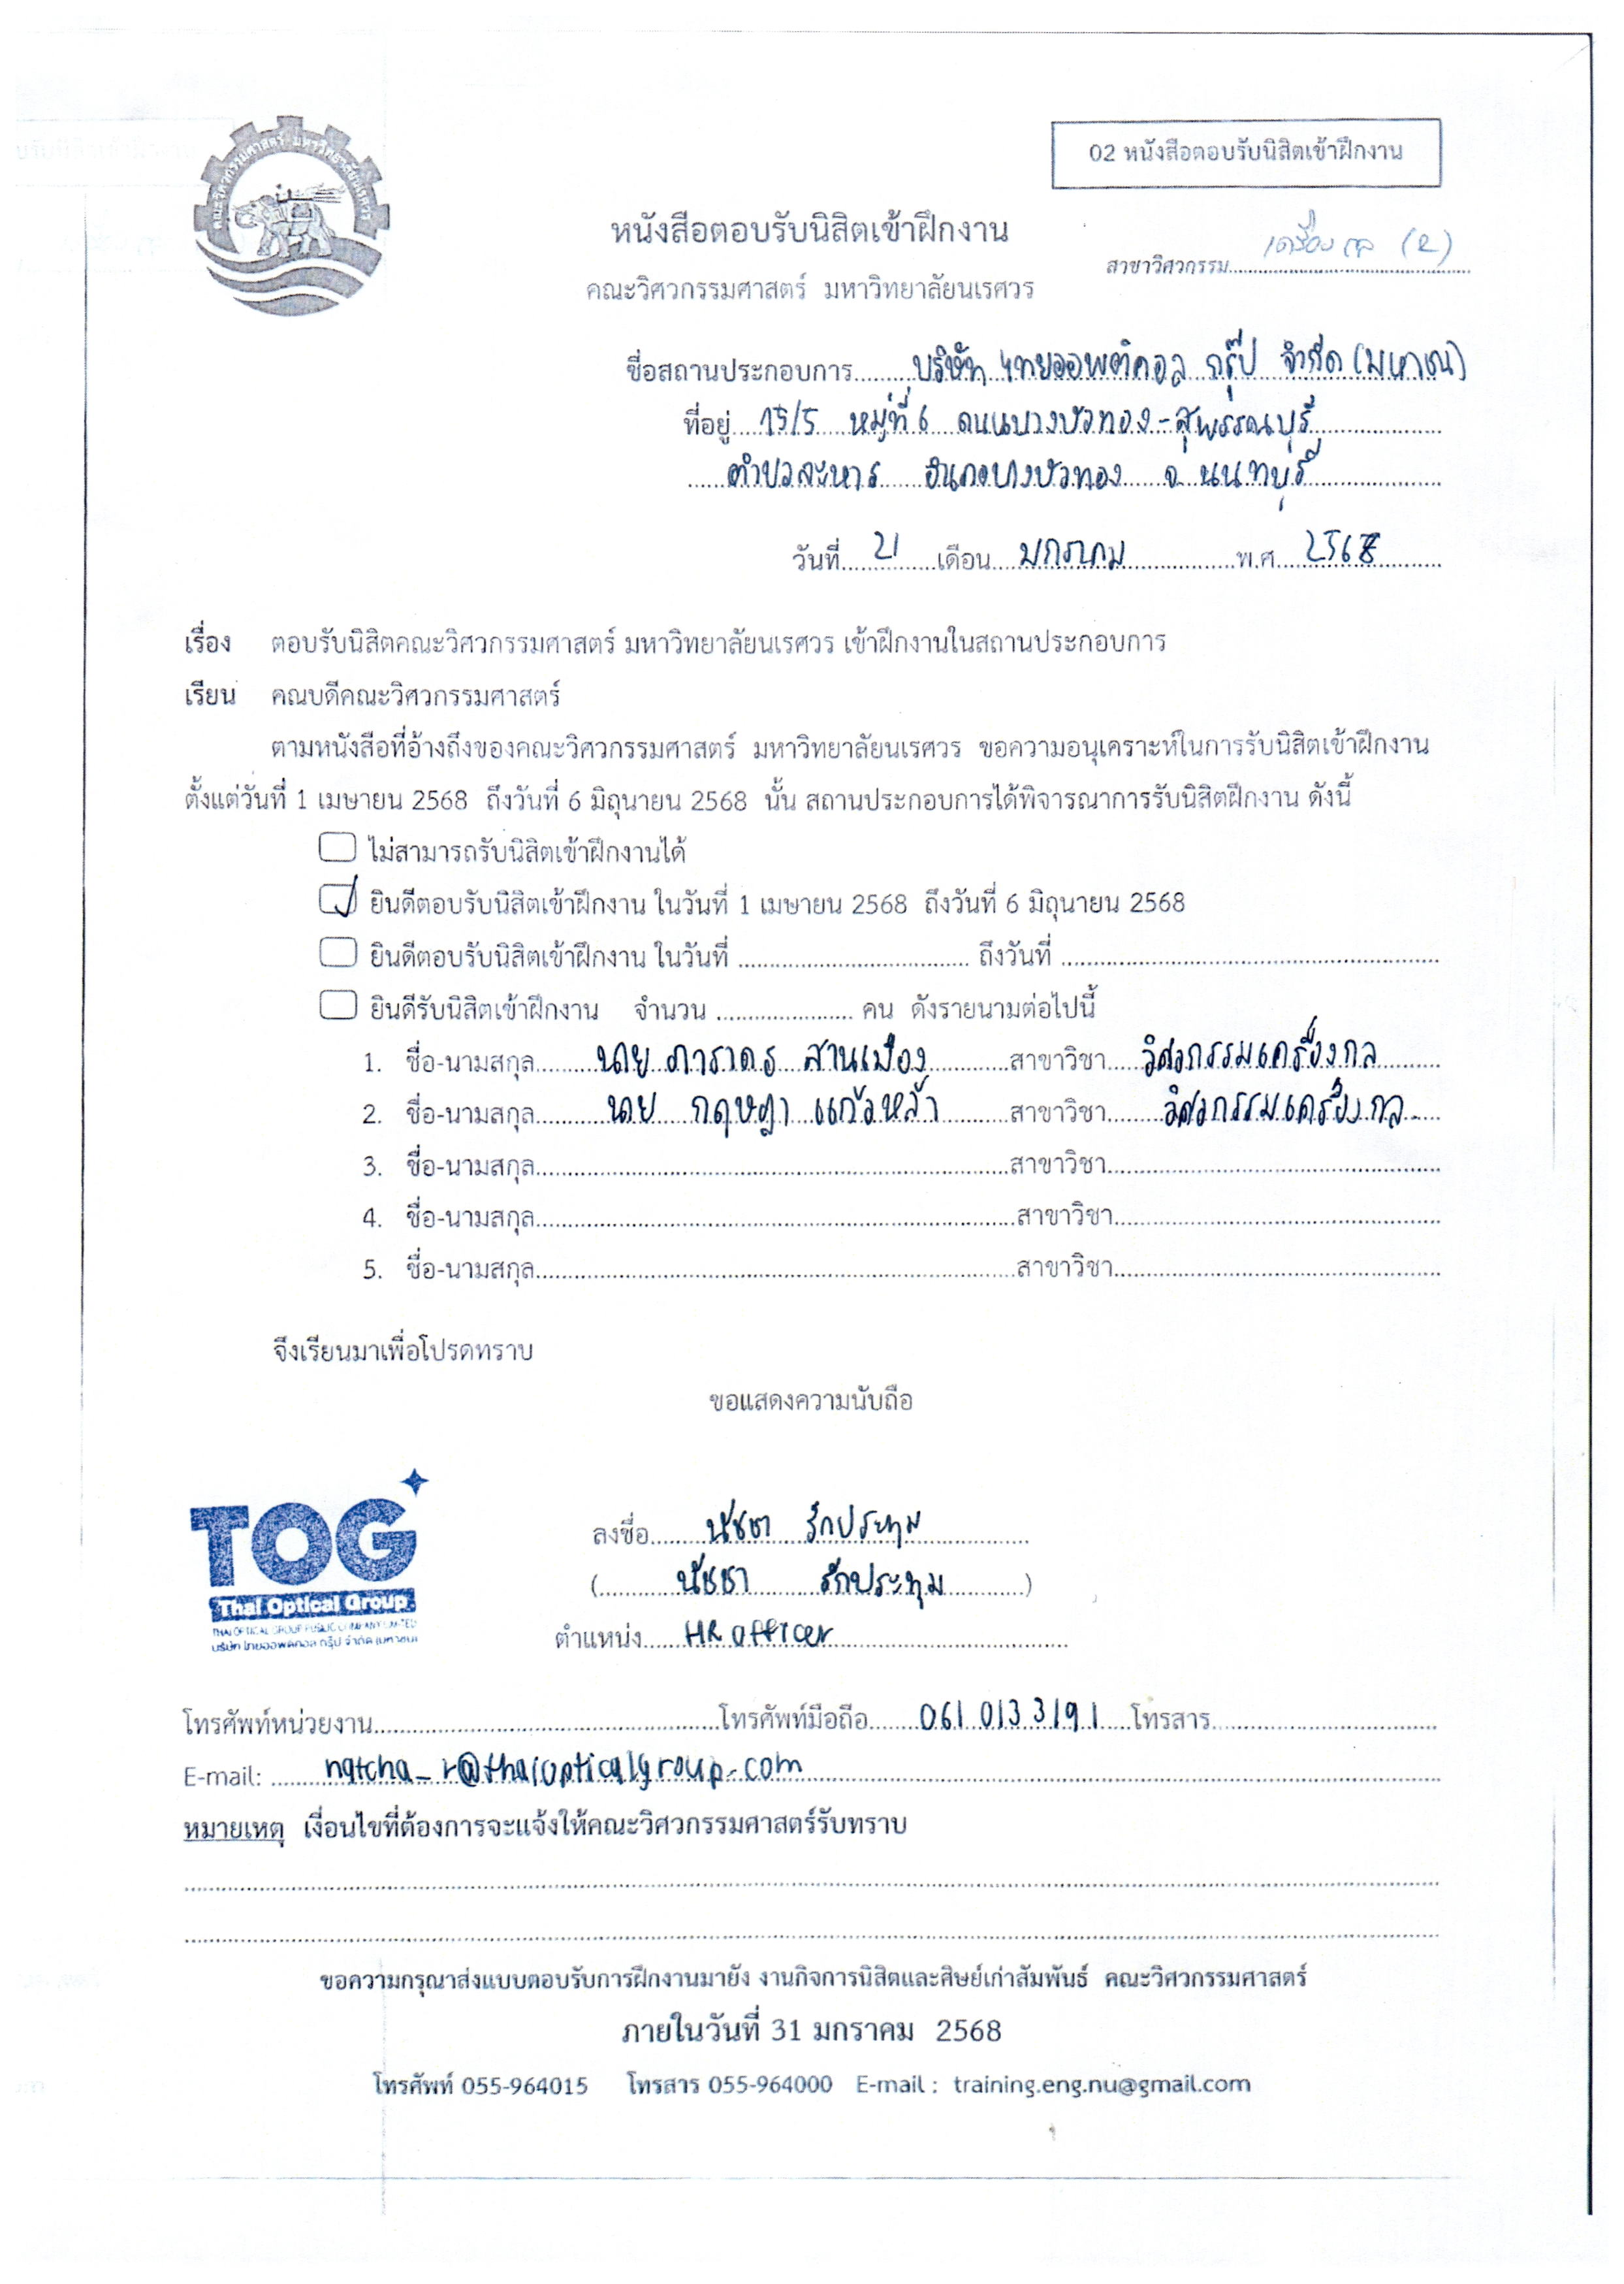 คณะวิศวกรรมศาสตร์ มหาวิทยาลัยนเรศวร
02 หนังสือตอบรับนิสิตเข้าฝึกงาน
หนังสือตอบรับนิสิตเข้าฝึกงาน
สาขาวิศวกรรม เครื่องกล (2)
คณะวิศวกรรมศาสตร์ มหาวิทยาลัยนเรศวร
ชื่อสถานประกอบการ บริษัท ไทยออพติคอล กรุ๊ป จำกัด (มหาชน)
ที่อยู่ 15/5 หมู่ที่ 6 ถนนบางบัวทอง-สุพรรณบุรี
ตำบลละหาร อำเภอบางบัวทอง จ. นนทบุรี
วันที่ 21 เดือน มกราคม พ.ศ. 2568
เรื่อง ตอบรับนิสิตคณะวิศวกรรมศาสตร์ มหาวิทยาลัยนเรศวร เข้าฝึกงานในสถานประกอบการ
เรียน คณบดีคณะวิศวกรรมศาสตร์
ตามหนังสือที่อ้างถึงของคณะวิศวกรรมศาสตร์ มหาวิทยาลัยนเรศวร ขอความอนุเคราะห์ในการรับนิสิตเข้าฝึกงาน
ตั้งแต่วันที่ 1 เมษายน 2568 ถึงวันที่ 6 มิถุนายน 2568 นั้น สถานประกอบการได้พิจารณาการรับนิสิตฝึกงาน ดังนี้
ไม่สามารถรับนิสิตเข้าฝึกงานได้
ยินดีตอบรับนิสิตเข้าฝึกงาน ในวันที่ 1 เมษายน 2568 ถึงวันที่ 6 มิถุนายน 2568
ยินดีตอบรับนิสิตเข้าฝึกงาน ในวันที่ ........ ถึงวันที่ ........
ยินดีรับนิสิตเข้าฝึกงาน จำนวน ........ คน ดังรายนามต่อไปนี้
1. ชื่อ-นามสกุล นาย ภาราดร สานเมือง สาขาวิชา วิศวกรรมเครื่องกล
2. ชื่อ-นามสกุล นาย กฤษฎา แก้วหล้า สาขาวิชา วิศวกรรมเครื่องกล
3. ชื่อ-นามสกุล ........ สาขาวิชา ........
4. ชื่อ-นามสกุล ........ สาขาวิชา ........
5. ชื่อ-นามสกุล ........ สาขาวิชา ........
จึงเรียนมาเพื่อโปรดทราบ
ขอแสดงความนับถือ
TOG
Thai Optical Group
THAI OPTICAL GROUP PUBLIC COMPANY LIMITED
บริษัท ไทยออพติคอล กรุ๊ป จำกัด (มหาชน)
ลงชื่อ นัชชา รักประทุม
( นัชชา รักประทุม )
ตำแหน่ง HR officer
โทรศัพท์หน่วยงาน ........ โทรศัพท์มือถือ 061 013 3191 โทรสาร ........
E-mail: natcha_r@thaiopticalgroup.com
หมายเหตุ เงื่อนไขที่ต้องการจะแจ้งให้คณะวิศวกรรมศาสตร์รับทราบ
ขอความกรุณาส่งแบบตอบรับการฝึกงานมายัง งานกิจการนิสิตและศิษย์เก่าสัมพันธ์ คณะวิศวกรรมศาสตร์
ภายในวันที่ 31 มกราคม 2568
โทรศัพท์ 055-964015 โทรสาร 055-964000 E-mail : training.eng.nu@gmail.com